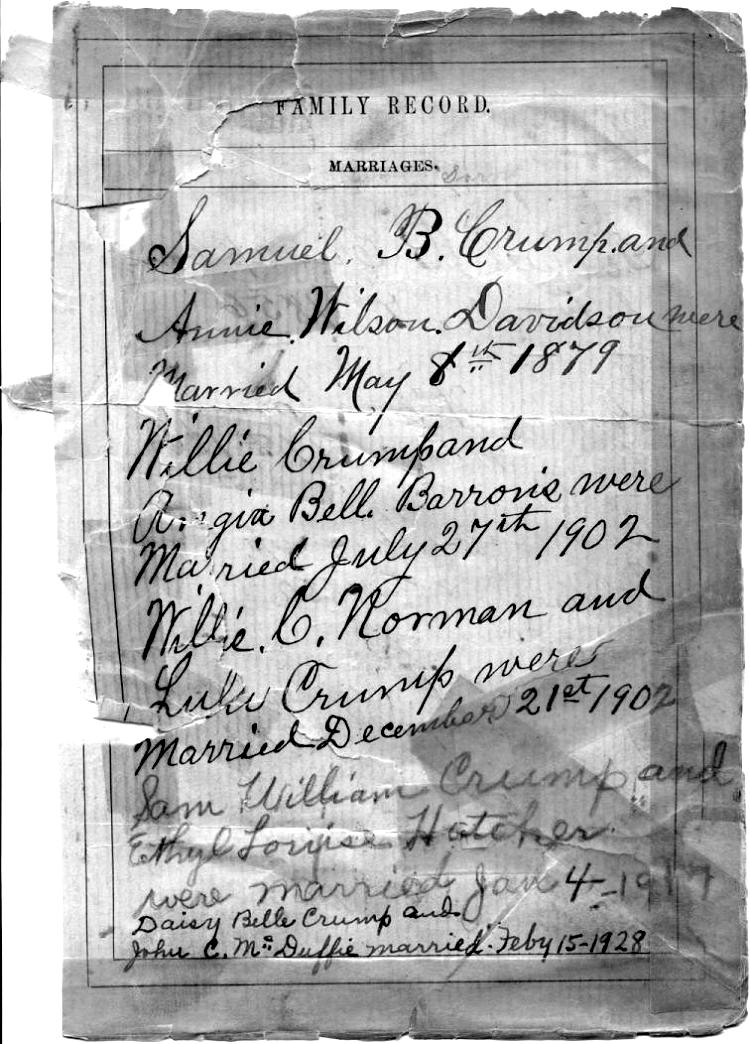 FAMILY RECORD.
MARRIAGES.
Samuel. B. Crump. and
Annie. Wilson. Davidson were
Married May 8th 1879
Willie Crump and
Angia Bell. Barronis were
Married July 27th 1902
Willie. C. Norman and
Lula Crump were
Married December 21st 1902
Sam William Crump and
Ethyl Louise Hatcher.
were married Jan 4-
Daisy Belle Crump and
John C. Mc Duffie married. Feby 15-1928